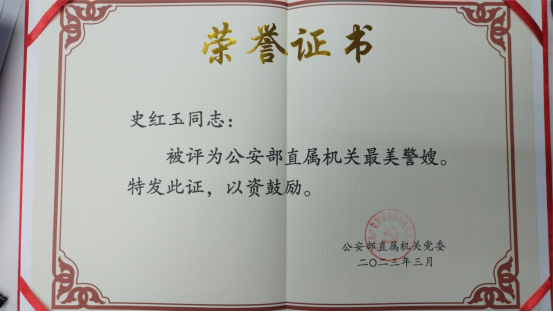 荣誉证书
史红玉同志：
被评为公安部直属机关最美警嫂。
特发此证，以资鼓励。
公安部直属机关党委
二〇二三年三月